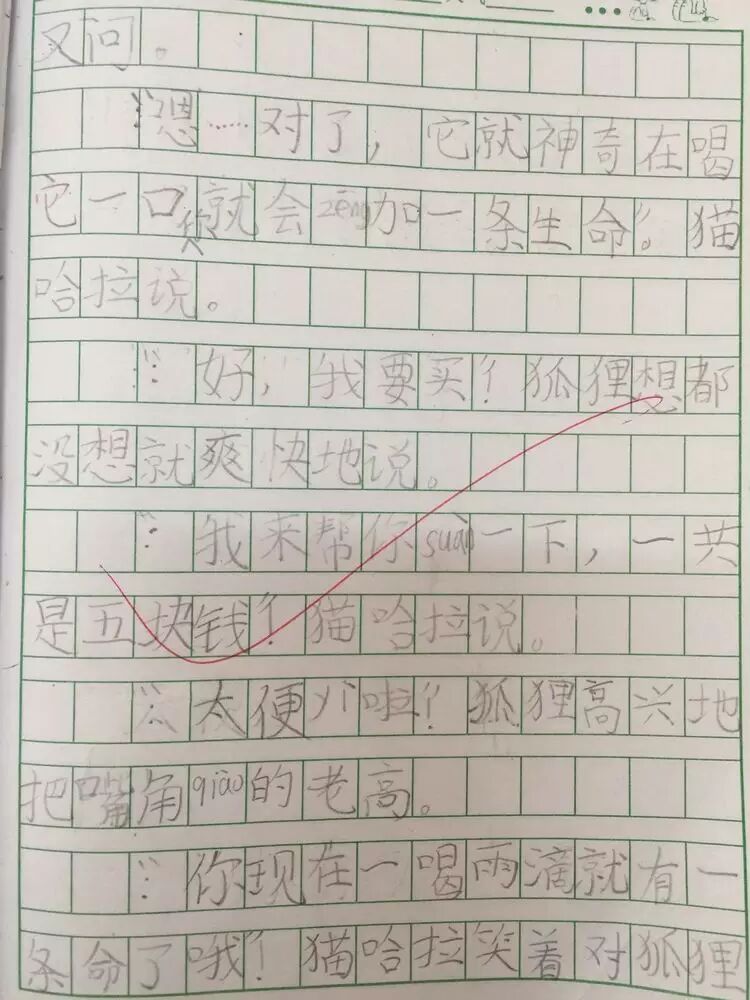 又问。
“嗯……对了，它就神奇在喝
它一口就会zēng加一条生命”。猫
哈拉说。
“好，我要买！”狐狸想都
没想就爽快地说。
“我来帮你suàn一下，一共
是五块钱！”猫哈拉说。
“太便yi啦！”狐狸高兴地
把嘴角qiào的老高。
“你现在一喝雨滴就有一
条命了哦！”猫哈拉笑着对狐狸